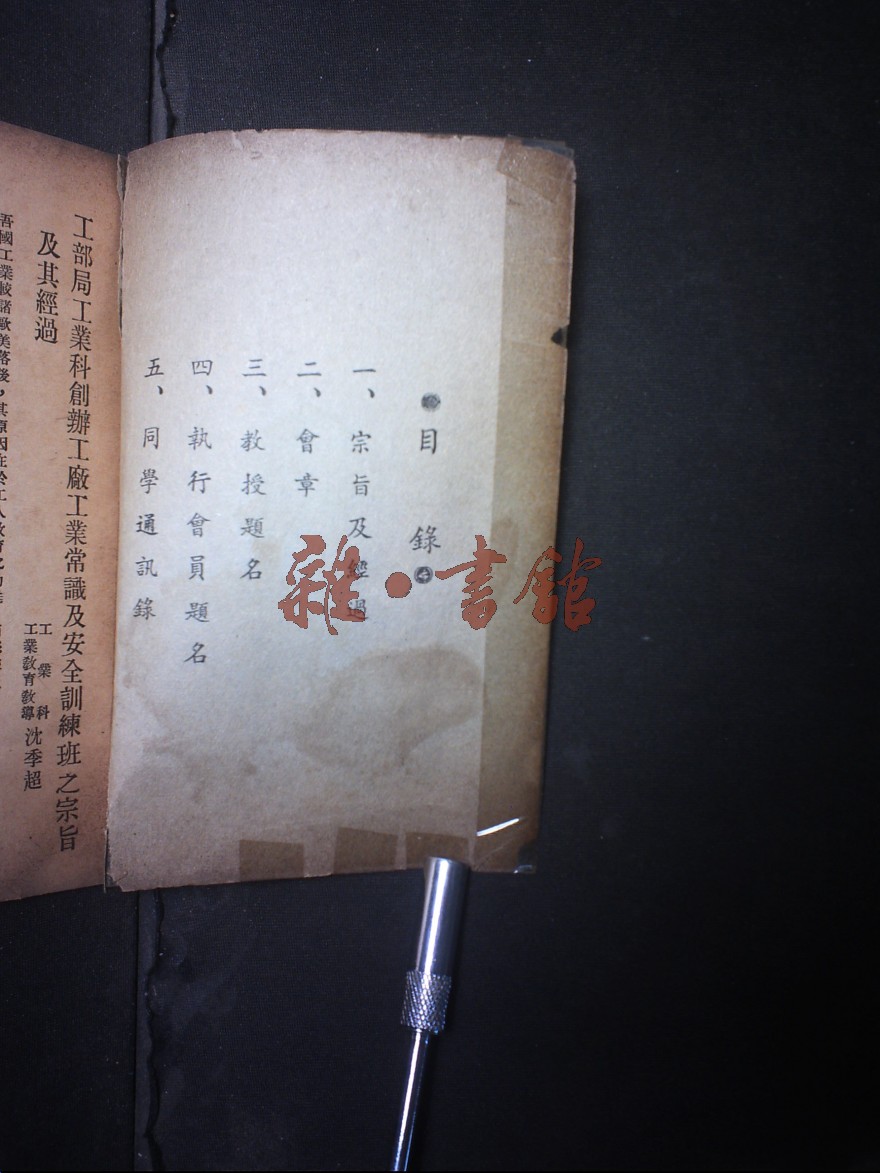 目錄
一、宗旨及經過
二、會章
三、教授題名
四、執行會員題名
五、同學通訊錄
工部局工業科創辦工廠工業常識及安全訓練班之宗旨
及其經過
工業科
工業教育教導 沈季超
吾國工業較諸歐美落後，其原因在於工人教育之
雜·書館